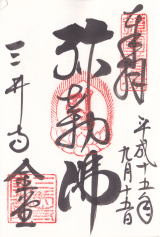 奉拝
平成十五年
九月十五日
弥勒佛
三井寺
金堂